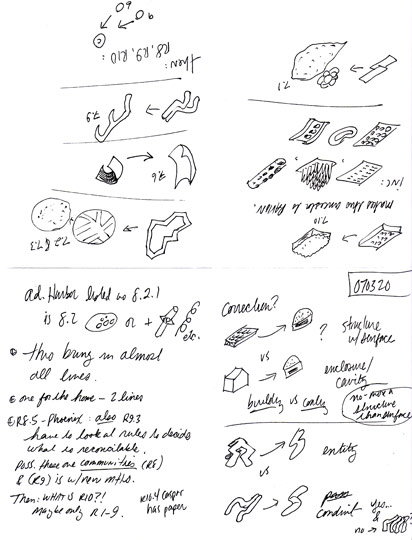 a
b
c
then: R8, R9, R10:
7.9
7.6
7.2 & 7.3
7.1
INC:
makes who
7.10
070320
ad. Harbor listed as 8.2.1
is 8.2 or + etc.
this bring in almost
all lines.
one for the home - 2 lines
R8.5 - Phoenix: also R9.3
have to look at rules to decide
what is reconcilable.
Poss. these are communities (R8)
& (R9) is w/ new mtls.
Then: WHAT IS R10?!
Maybe only R1-9.
R10.4 Casper
has paper
Correction?
? structure
w/ surface
vs
enclosure/
cavity
building vs cavity
no - more a
structure
than surface
entity
vs
conduit
yes...
&
no →